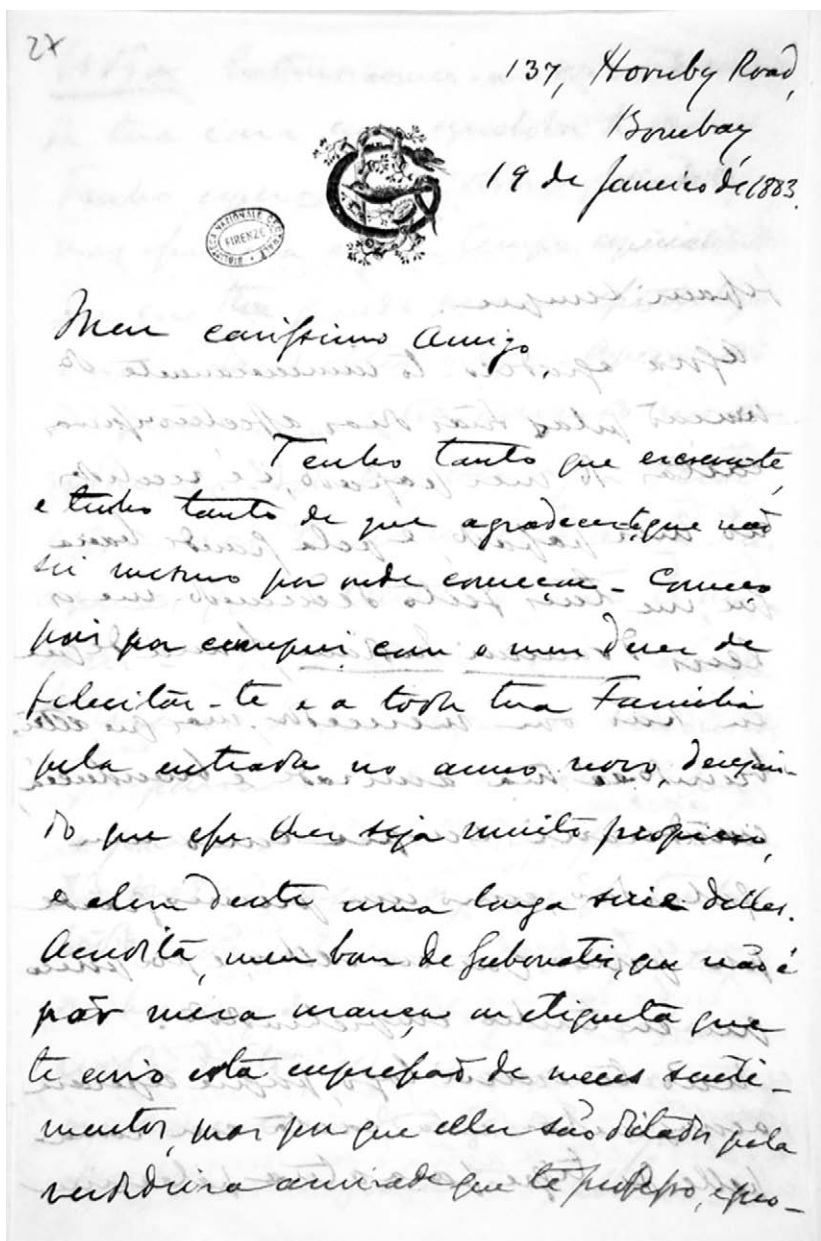 27
137, Hornby Road,
Bombay
19 de Janeiro de 1883.
BIBLIOTECA NAZIONALE CENTRALE
FIRENZE
Meu carissimo Amigo,
Tenho tanto que escrever-te,
e tenho tanto de que agradecer-te, que não
sei mesmo por onde começar - Começo
pois por cumprir com o meu dever de
felicitar-te e a toda tua Familia
pela entrada no anno novo, desejan-
do que esse lhes seja muito propicio,
e alem deste uma longa serie delles.
Acredita, meu bom de Gubernatis, que não é
por mera usança ou etiqueta que
te envio esta expressão de meus senti-
mentos, mas por que elles são dictados pela
verdadeira amizade que te professo, e